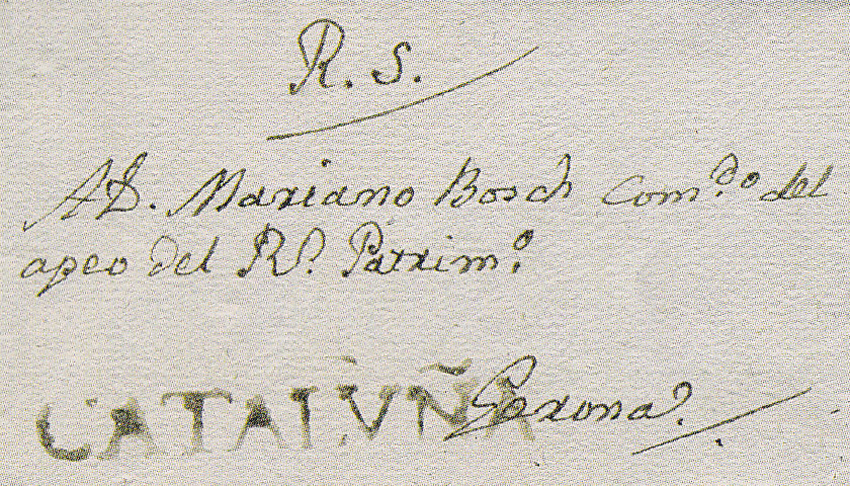 R. S.
A D. Mariano Bosch Com.do del
apeo del Rl. Patrim.o
CATALUÑA Gerona.